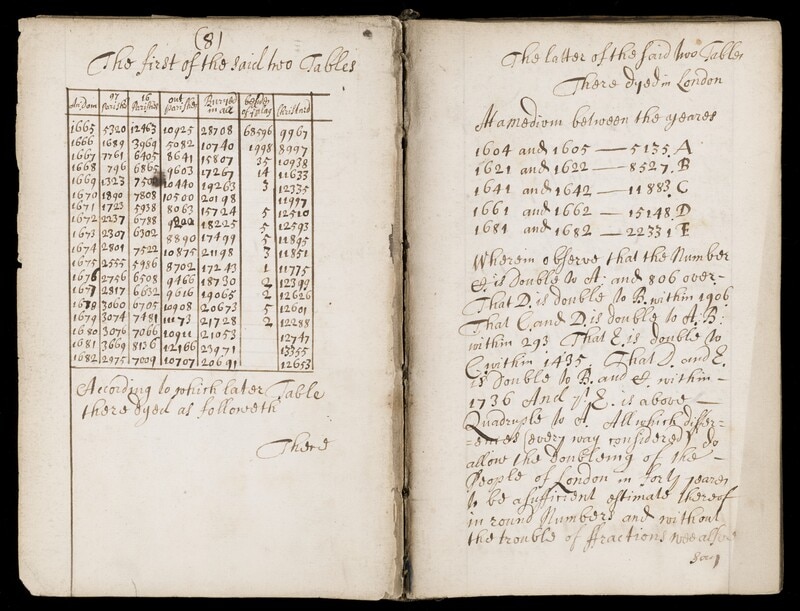 (8)
The first of the said two Tables
An.Dom 97 Parishes 16 Parishes out Parishes Buryed in all besides of plag Christned
1665 5320 12463 10925 28708 68596 9967
1666 1689 3969 5082 10740 1998 8997
1667 7761 6405 8641 15807 35 10938
1668 796 6865 9603 17267 14 11633
1669 1323 7500 10440 19263 3 12335
1670 1890 7808 10500 20198 11997
1671 1723 5938 8063 15724 5 12510
1672 2237 6788 9200 18225 5 12593
1673 2307 6302 8890 17499 5 11895
1674 2801 7522 10875 21198 3 11851
1675 2555 5986 8702 17243 1 11775
1676 2756 6508 9466 18730 2 12399
1677 2817 6632 9616 19065 2 12626
1678 3060 6705 10908 20673 5 12601
1679 3074 7481 11173 21728 2 12288
1680 3076 7066 10911 21053 12747
1681 3669 8136 12166 23971 13355
1682 2975 7009 10707 20691 12653
According to which later Table
there dyed as followeth
There
The latter of the said two Tables
There dyed in London
At a mediom between the yeares
1604 and 1605 — 5135. A
1621 and 1622 — 8527. B
1641 and 1642 — 11883. C
1661 and 1662 — 15148. D
1681 and 1682 — 22331 E
Wherein observe that the Number
C. is double to A: and 806 over-
That D. is double to B. within 1906
That C. and D. is double to A: B:
within 293 That E. is double to
C. within 1435. That D. and E.
is double to B. and C. within —
1736 And yt E. is above —
Quadruple to A. All which differ-
=ences (every way considered) do
allow the doubleing of the —
People of London in forty yeares
to be a sufficient estimate thereof
in round Numbers and without
the trouble of ffractions wee also